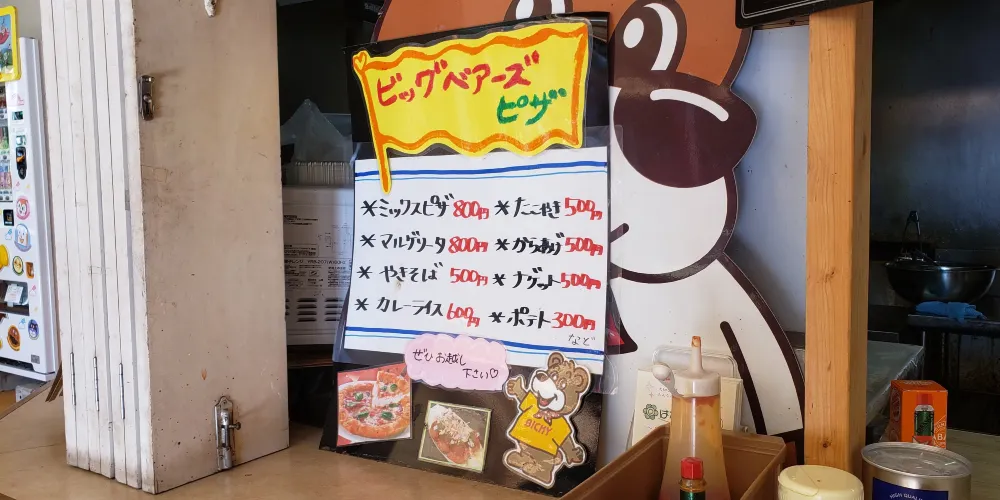 ビッグベアーズ
ピザ
*ミックスピザ 800円
*マルゲリータ 800円
*やきそば 500円
*カレーライス 600円
*たこやき 500円
*からあげ 500円
*ナゲット 500円
*ポテト 300円
など
ぜひお越し
下さい♡
BICHY